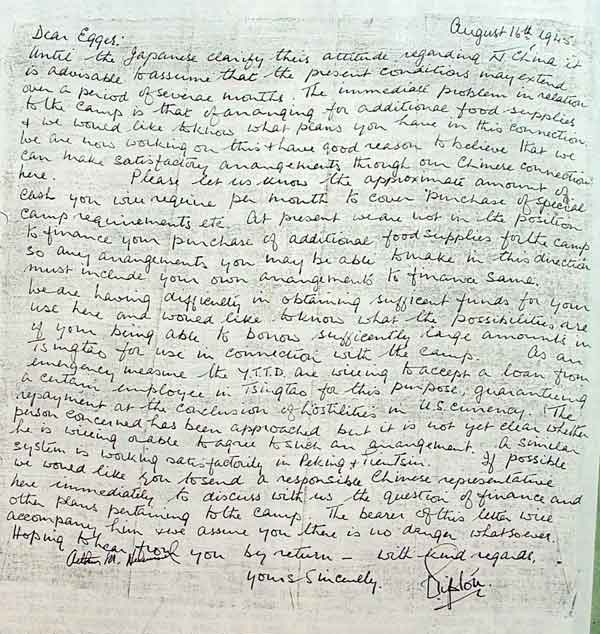 August 16th, 1945.
Dear Egger:
Until the Japanese clarify their attitude regarding N China it
is advisable to assume that the present conditions may extend
over a period of several months. The immediate problem in relation
to the camp is that of arranging for additional food supplies
& we would like to know what plans you have in this connection.
We are now working on this & have good reason to believe that we
can make satisfactory arrangements through our Chinese connection
here. Please let us know the approximate amount of
cash you will require per month to cover purchase of special
camp requirements etc. At present we are not in the position
to finance your purchase of additional food supplies for the camp
so any arrangements you may be able to make in this direction
must include your own arrangements to finance same.
We are having difficulty in obtaining sufficent funds for your
use here and would like to know what the possibilities are
of your being able to borrow sufficently large amounts in
Tsingtao for use in connection with the camp. As an
emergency measure the Y.T.T.D. are willing to accept a loan from
a certain employee in Tsingtao for this purpose, guaranteeing
repayment at the conclusion of hostilities in U.S. currency. (The
person concerned has been approached but it is not yet clear whether
he is willing or able to agree to such an arrangement. A similar
system is working satisfactorily in Peking & Tientsin. If possible
we would like you to send a responsible Chinese representative
here immediately to discuss with us the question of finance and
other plans pertaining to the camp. The bearer of this letter will
accompany him & we assure you there is no danger whatsoever.
Hoping to hear from you by return – with kind regards,
Arthur M.
Yours Sincerely.
Tipton.